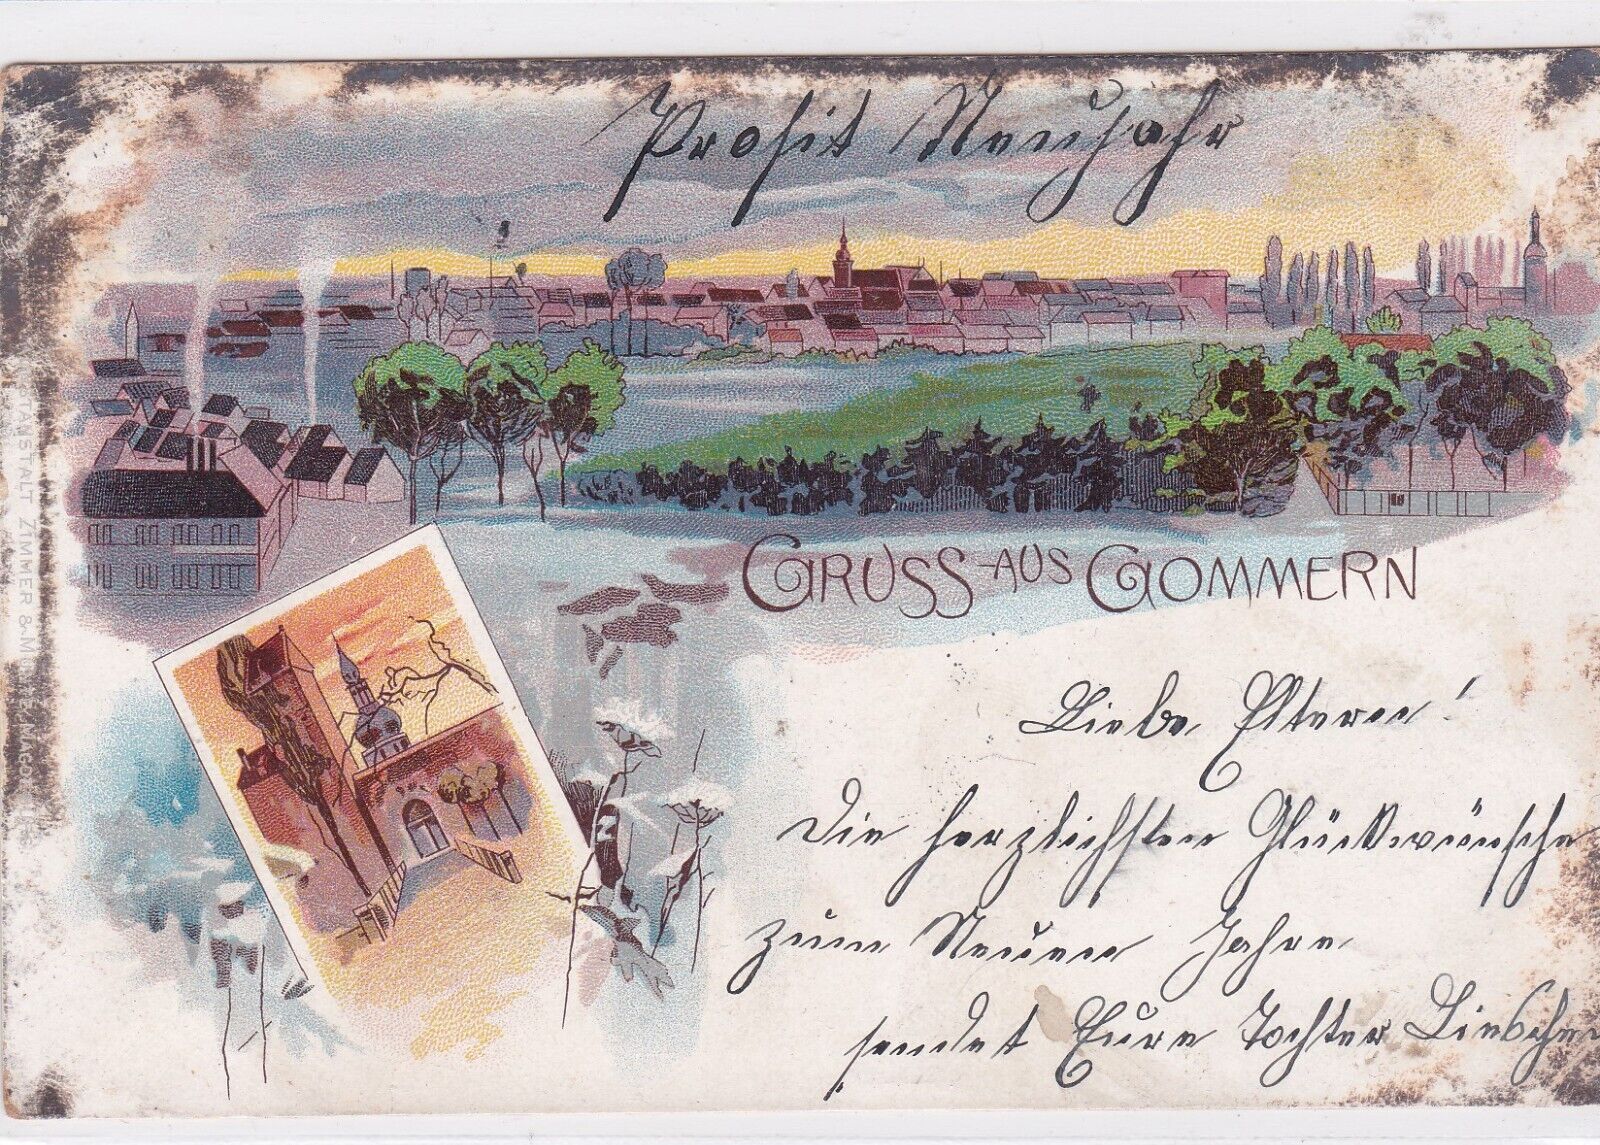 Prosit Neujahr
GRUSS AUS GOMMERN
Liebe Eltern!
Die herzlichsten Glückwünsche
zum Neuen Jahre
sendet Eure Tochter Liebchen
STANSTALT ZIMMER &